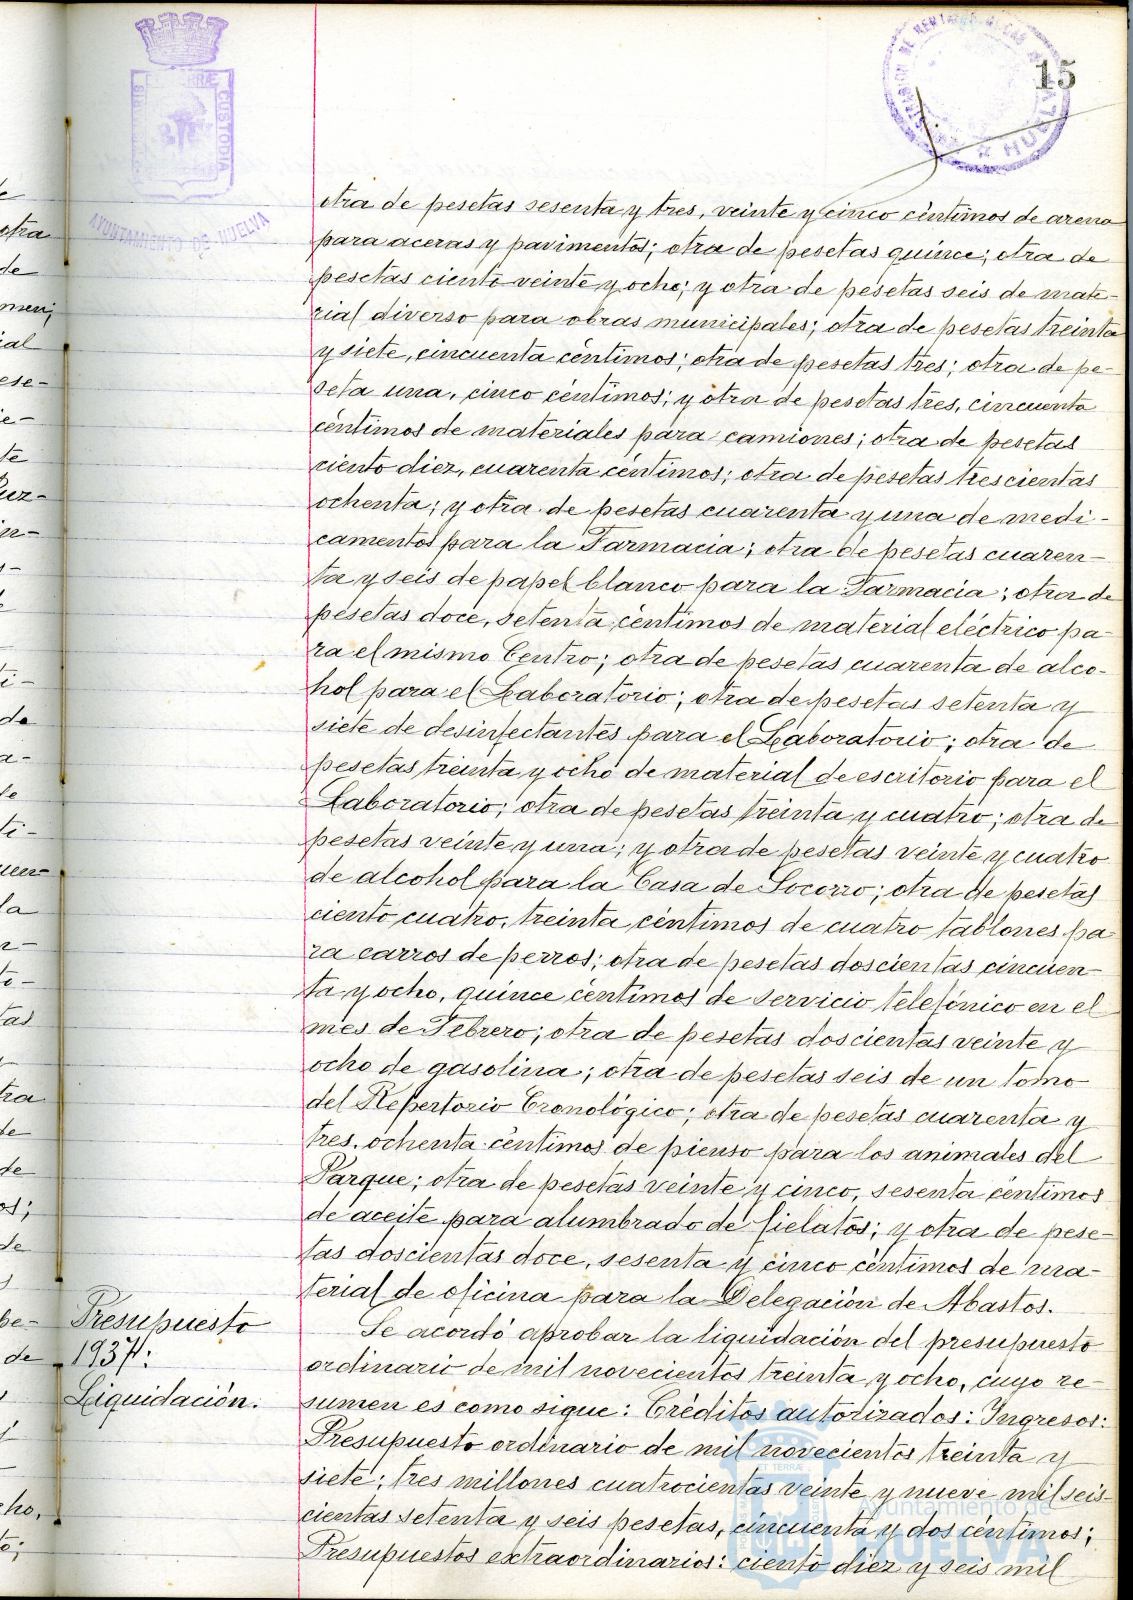 15
AYUNTAMIENTO DE HUELVA
CUSTODIA
HUELVA
otra de pesetas sesenta y tres, veinte y cinco céntimos de arena
para aceras y pavimentos; otra de pesetas quince; otra de
pesetas ciento veinte y ocho; y otra de pesetas seis de mate-
rial diverso para obras municipales; otra de pesetas treinta
y siete, cincuenta céntimos; otra de pesetas tres; otra de pe-
seta una, cinco céntimos; y otra de pesetas tres, cincuenta
céntimos de materiales para camiones; otra de pesetas
ciento diez, cuarenta céntimos; otra de pesetas trescientas
ochenta; y otra de pesetas cuarenta y una de medi-
camentos para la Farmacia; otra de pesetas cuaren-
ta y seis de papel blanco para la Farmacia; otra de
pesetas doce, setenta céntimos de material eléctrico pa-
ra el mismo Centro; otra de pesetas cuarenta de alco-
hol para el Laboratorio; otra de pesetas setenta y
siete de desinfectantes para el Laboratorio; otra de
pesetas treinta y ocho de material de escritorio para el
Laboratorio; otra de pesetas treinta y cuatro; otra de
pesetas veinte y una; y otra de pesetas veinte y cuatro
de alcohol para la Casa de Socorro; otra de pesetas
ciento cuatro, treinta céntimos de cuatro tablones pa-
ra carros de perros; otra de pesetas doscientas cincuen-
ta y ocho, quince céntimos de servicio telefónico en el
mes de Febrero; otra de pesetas doscientas veinte y
ocho de gasolina; otra de pesetas seis de un tomo
del Repertorio Cronológico; otra de pesetas cuarenta y
tres, ochenta céntimos de pienso para los animales del
Parque; otra de pesetas veinte y cinco, sesenta céntimos
de aceite para alumbrado de fielatos; y otra de pese-
tas doscientas doce, sesenta y cinco céntimos de ma-
terial de oficina para la Delegación de Abastos.
Presupuesto
1937:
Liquidación.
Se acordó aprobar la liquidación del presupuesto
ordinario de mil novecientos treinta y ocho, cuyo re-
sumen es como sigue: Créditos autorizados: Ingresos:
Presupuesto ordinario de mil novecientos treinta y
siete; tres millones cuatrocientas veinte y nueve mil seis-
cientas setenta y seis pesetas, cincuenta y dos céntimos;
Presupuestos extraordinarios: ciento diez y seis mil
Ayuntamiento de
HUELVA